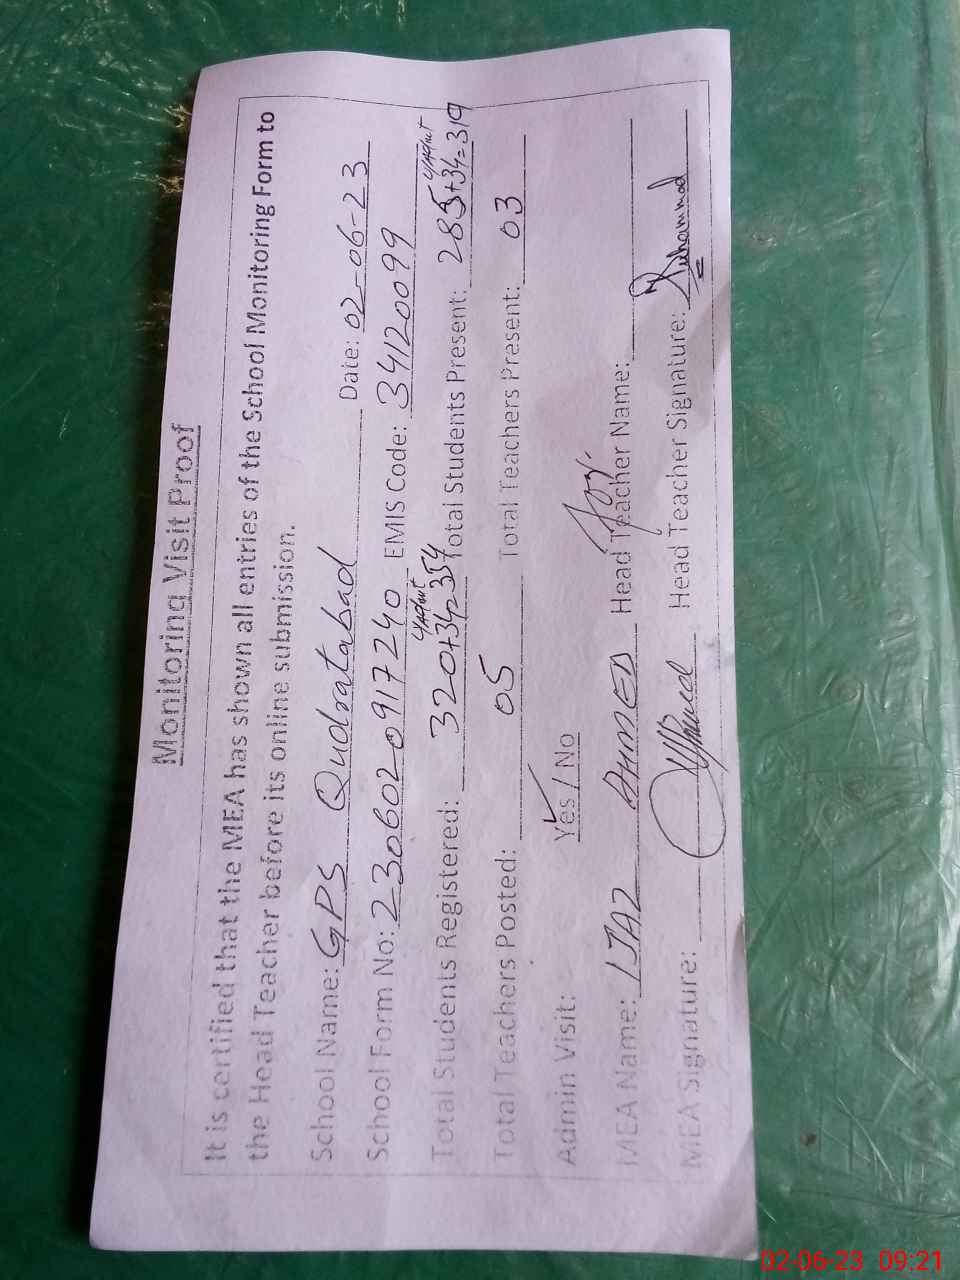 Monitoring Visit Proof
It is certified that the MEA has shown all entries of the School Monitoring Form to
the Head Teacher before its online submission.
School Name: GPS Qudratabad Date: 02-06-23
School Form No: 2306020917240 EMIS Code: 34120099
Total Students Registered: 320+34=354 Total Students Present: 285+34=319
Total Teachers Posted: 05 Total Teachers Present: 03
Admin Visit: Yes / No
MEA Name: IJAZ AHMED Head Teacher Name:
MEA Signature: Head Teacher Signature: Muhammad
02-06-23 09:21